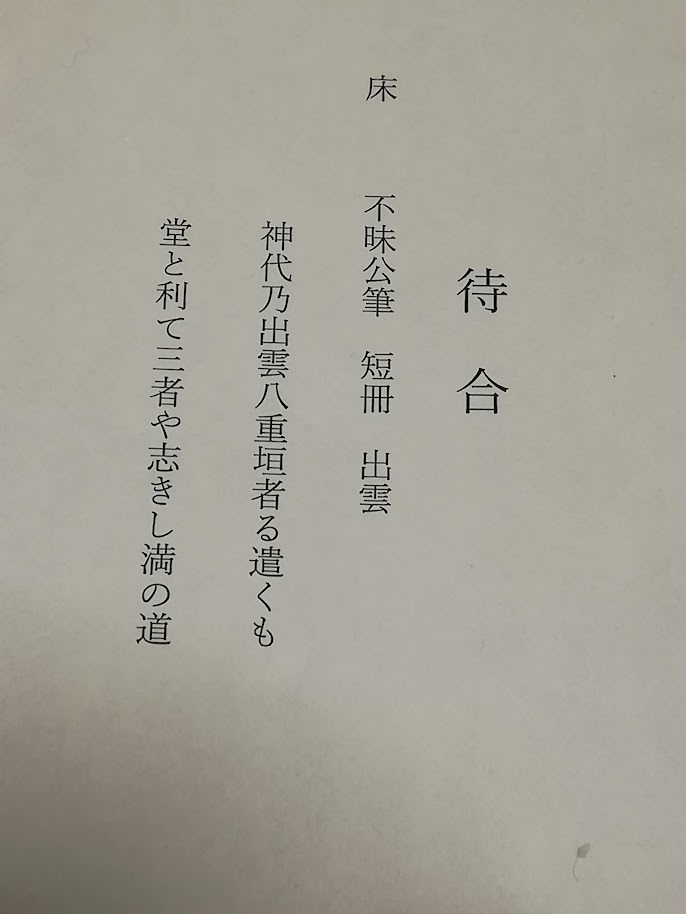 待合
床 不昧公筆 短冊 出雲
神代乃出雲八重垣者る遣くも
堂と利て三者や志きし満の道